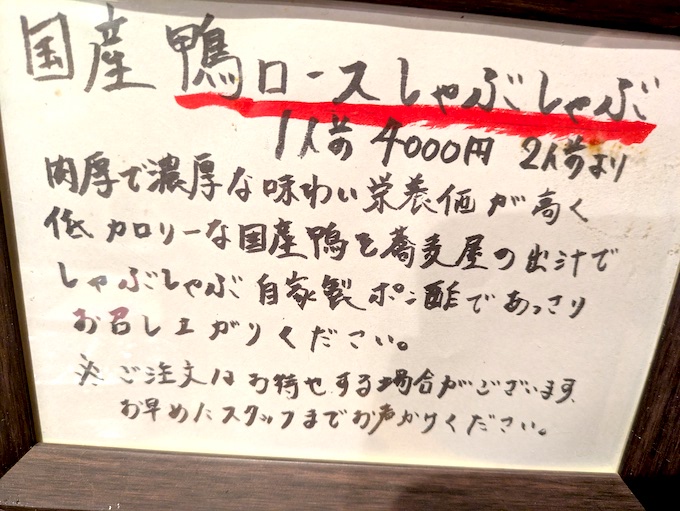 国産鴨ロースしゃぶしゃぶ
1人前 4000円 2人前より
肉厚で濃厚な味わい栄養価が高く
低カロリーな国産鴨を蕎麦屋の出汁で
しゃぶしゃぶ自家製ポン酢であっさり
お召し上がりください。
※ご注文はお待せする場合がございます、
お早めにスタッフまでお声がけください。